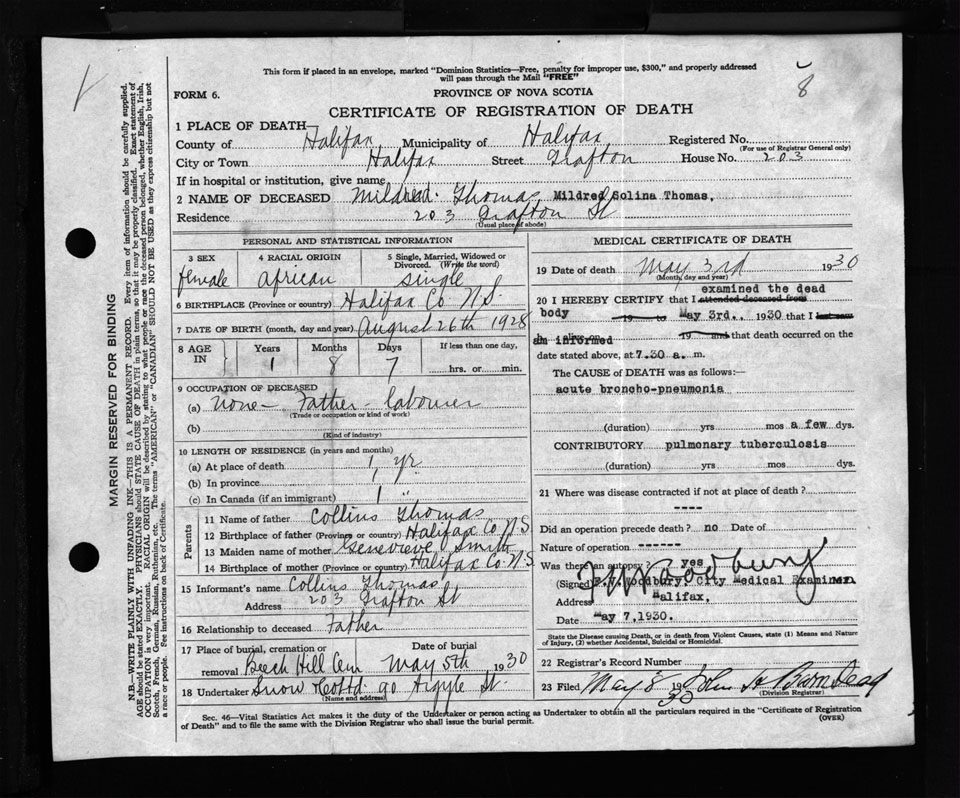 This form if placed in an envelope, marked "Dominion Statistics—Free, penalty for improper use, $300," and properly addressed
will pass through the Mail "FREE"
8
FORM 6.
PROVINCE OF NOVA SCOTIA
CERTIFICATE OF REGISTRATION OF DEATH
1 PLACE OF DEATH
County of Halifax Municipality of Halifax Registered No.
(For use of Registrar General only)
City or Town Halifax Street Grafton House No. 203
If in hospital or institution, give name
2 NAME OF DECEASED Mildred Thomas Mildred Solina Thomas,
Residence 203 Grafton St
(Usual place of abode)
PERSONAL AND STATISTICAL INFORMATION
3 SEX 4 RACIAL ORIGIN 5 Single, Married, Widowed or
Divorced. (Write the word)
female african Single
6 BIRTHPLACE (Province or country) Halifax Co N.S.
7 DATE OF BIRTH (month, day and year) August 26th 1928
8 AGE IN Years Months Days If less than one day,
1 8 7 hrs. or min.
9 OCCUPATION OF DECEASED
(a) none — Father - labourer
(Trade or occupation or kind of work)
(b)
(Kind of industry)
10 LENGTH OF RESIDENCE (in years and months)
(a) At place of death 1 yr.
(b) In province
(c) In Canada (if an immigrant) 1 "
Parents
11 Name of father Collins Thomas
12 Birthplace of father (Province or country) Halifax Co N S
13 Maiden name of mother Genevieve Smith
14 Birthplace of mother (Province or country) Halifax Co. N.S.
15 Informant's name Collins Thomas
Address 203 Grafton St
16 Relationship to deceased Father
17 Place of burial, cremation or Date of burial
removal Beech Hill Cem May 5th 1930
18 Undertaker Snow &Co Ltd 90 Argyle St.
(Name and address)
MEDICAL CERTIFICATE OF DEATH
19 Date of death May 3rd 1930
(Month, day and year)
examined the dead
20 I HEREBY CERTIFY that I attended deceased from
body 19 to May 3rd.. 1930 that I last saw
am informed 19 and that death occurred on the
date stated above, at 7.30 a. m.
The CAUSE of DEATH was as follows:—
acute broncho-pneumonia
(duration) yrs mos a few dys.
CONTRIBUTORY pulmonary tuberculosis
(duration) yrs mos dys.
21 Where was disease contracted if not at place of death?
----
Did an operation precede death? no Date of
Nature of operation -------
Was there an autopsy? yes
(Signed) F.V. Woodbury, City Medical Examiner
Address Halifax,
Date May 7,1930.
State the Disease causing Death, or in death from Violent Causes, state (1) Means and Nature
of Injury, (2) whether Accidental, Suicidal or Homicidal.
22 Registrar's Record Number
23 Filed May 8 1930 John H Barnstead
(Division Registrar)
Sec. 46—Vital Statistics Act makes it the duty of the Undertaker or person acting as Undertaker to obtain all the particulars required in the "Certificate of Registration
of Death" and to file the same with the Division Registrar who shall issue the burial permit. (OVER)
MARGIN RESERVED FOR BINDING
N.B.—WRITE PLAINLY WITH UNFADING INK—THIS IS A PERMANENT RECORD. Every item of information should be carefully supplied.
AGE should be stated EXACTLY. PHYSICIANS should STATE CAUSE OF DEATH in plain terms, so that it may be properly classified. Exact statement of
OCCUPATION is very important. RACIAL ORIGIN will be described by stating to what people or race the deceased person belonged, whether English, Irish,
Scotch, French, German, Russian, Ruthenian, etc. The terms "AMERICAN" or "CANADIAN" SHOULD NOT BE USED as they express citizenship but not
a race or people. See instructions on back of Certificate.